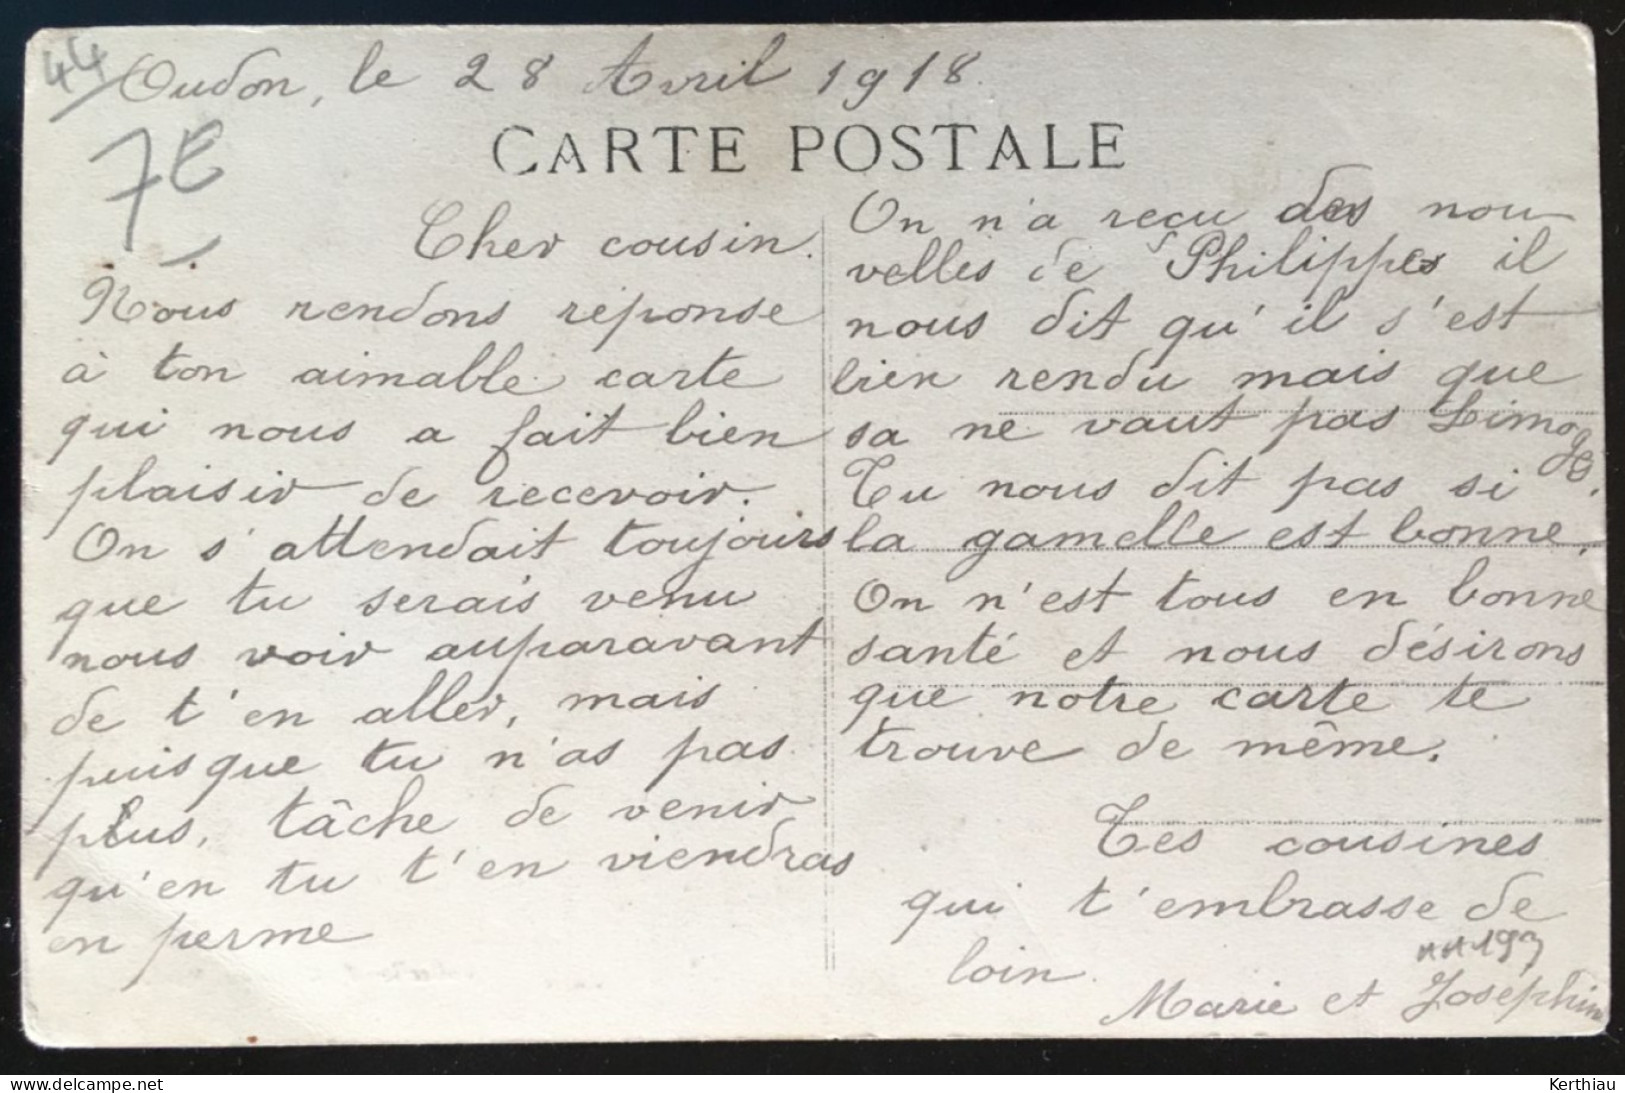 44
Oudon, le 28 Avril 1918.
7E
CARTE POSTALE
Cher cousin.
Nous rendons réponse
à ton aimable carte
qui nous a fait bien
plaisir de recevoir.
On s'attendait toujours
que tu serais venu
nous voir auparavant
de t'en aller, mais
puisque tu n'as pas
plus, tâche de venir
qu'en tu t'en viendras
en perme
On n'a reçu des nou-
velles de Philippe il
nous dit qu'il s'est
bien rendu mais que
sa ne vaut pas Limoges.
Tu nous dit pas si
la gamelle est bonne.
On n'est tous en bonne
santé et nous désirons
que notre carte te
trouve de même.
Tes cousines
qui t'embrasse de
loin.
Marie et Josephine
www.delcampe.net
Kerthiau